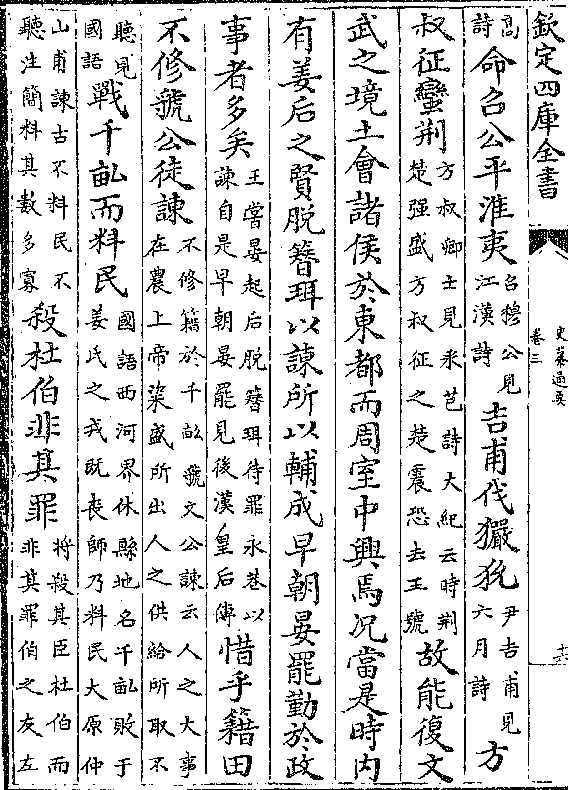 欽定四庫全書
史纂通要
卷三
十六
髙詩命召公平淮夷召穆公見江漢詩吉甫伐玁狁尹吉甫見六月詩方
叔征蠻荆方叔卿士見采芑詩大紀云時荆楚强盛方叔征之楚震恐去王號故能復文
武之境土會諸侯於東都而周室中興焉况當是時内
有姜后之賢脱簪珥以諫所以輔成早朝晏罷勤於政
事者多矣王嘗晏起后脱簪珥待罪永巷以諫自是早朝晏罷見後漢皇后傳惜乎籍田
不修虢公徒諫不修籍於千畝虢文公諫云人之大事在農上帝粢盛所出人之供給所取不
聽見國語戰千畝而料民國語西河界休縣地名千畝敗于姜氏之戎既喪師乃料民大原仲
山甫諫古不料民不聽注簡料其數多寡殺杜伯非其罪將殺其臣杜伯而非其罪伯之友左